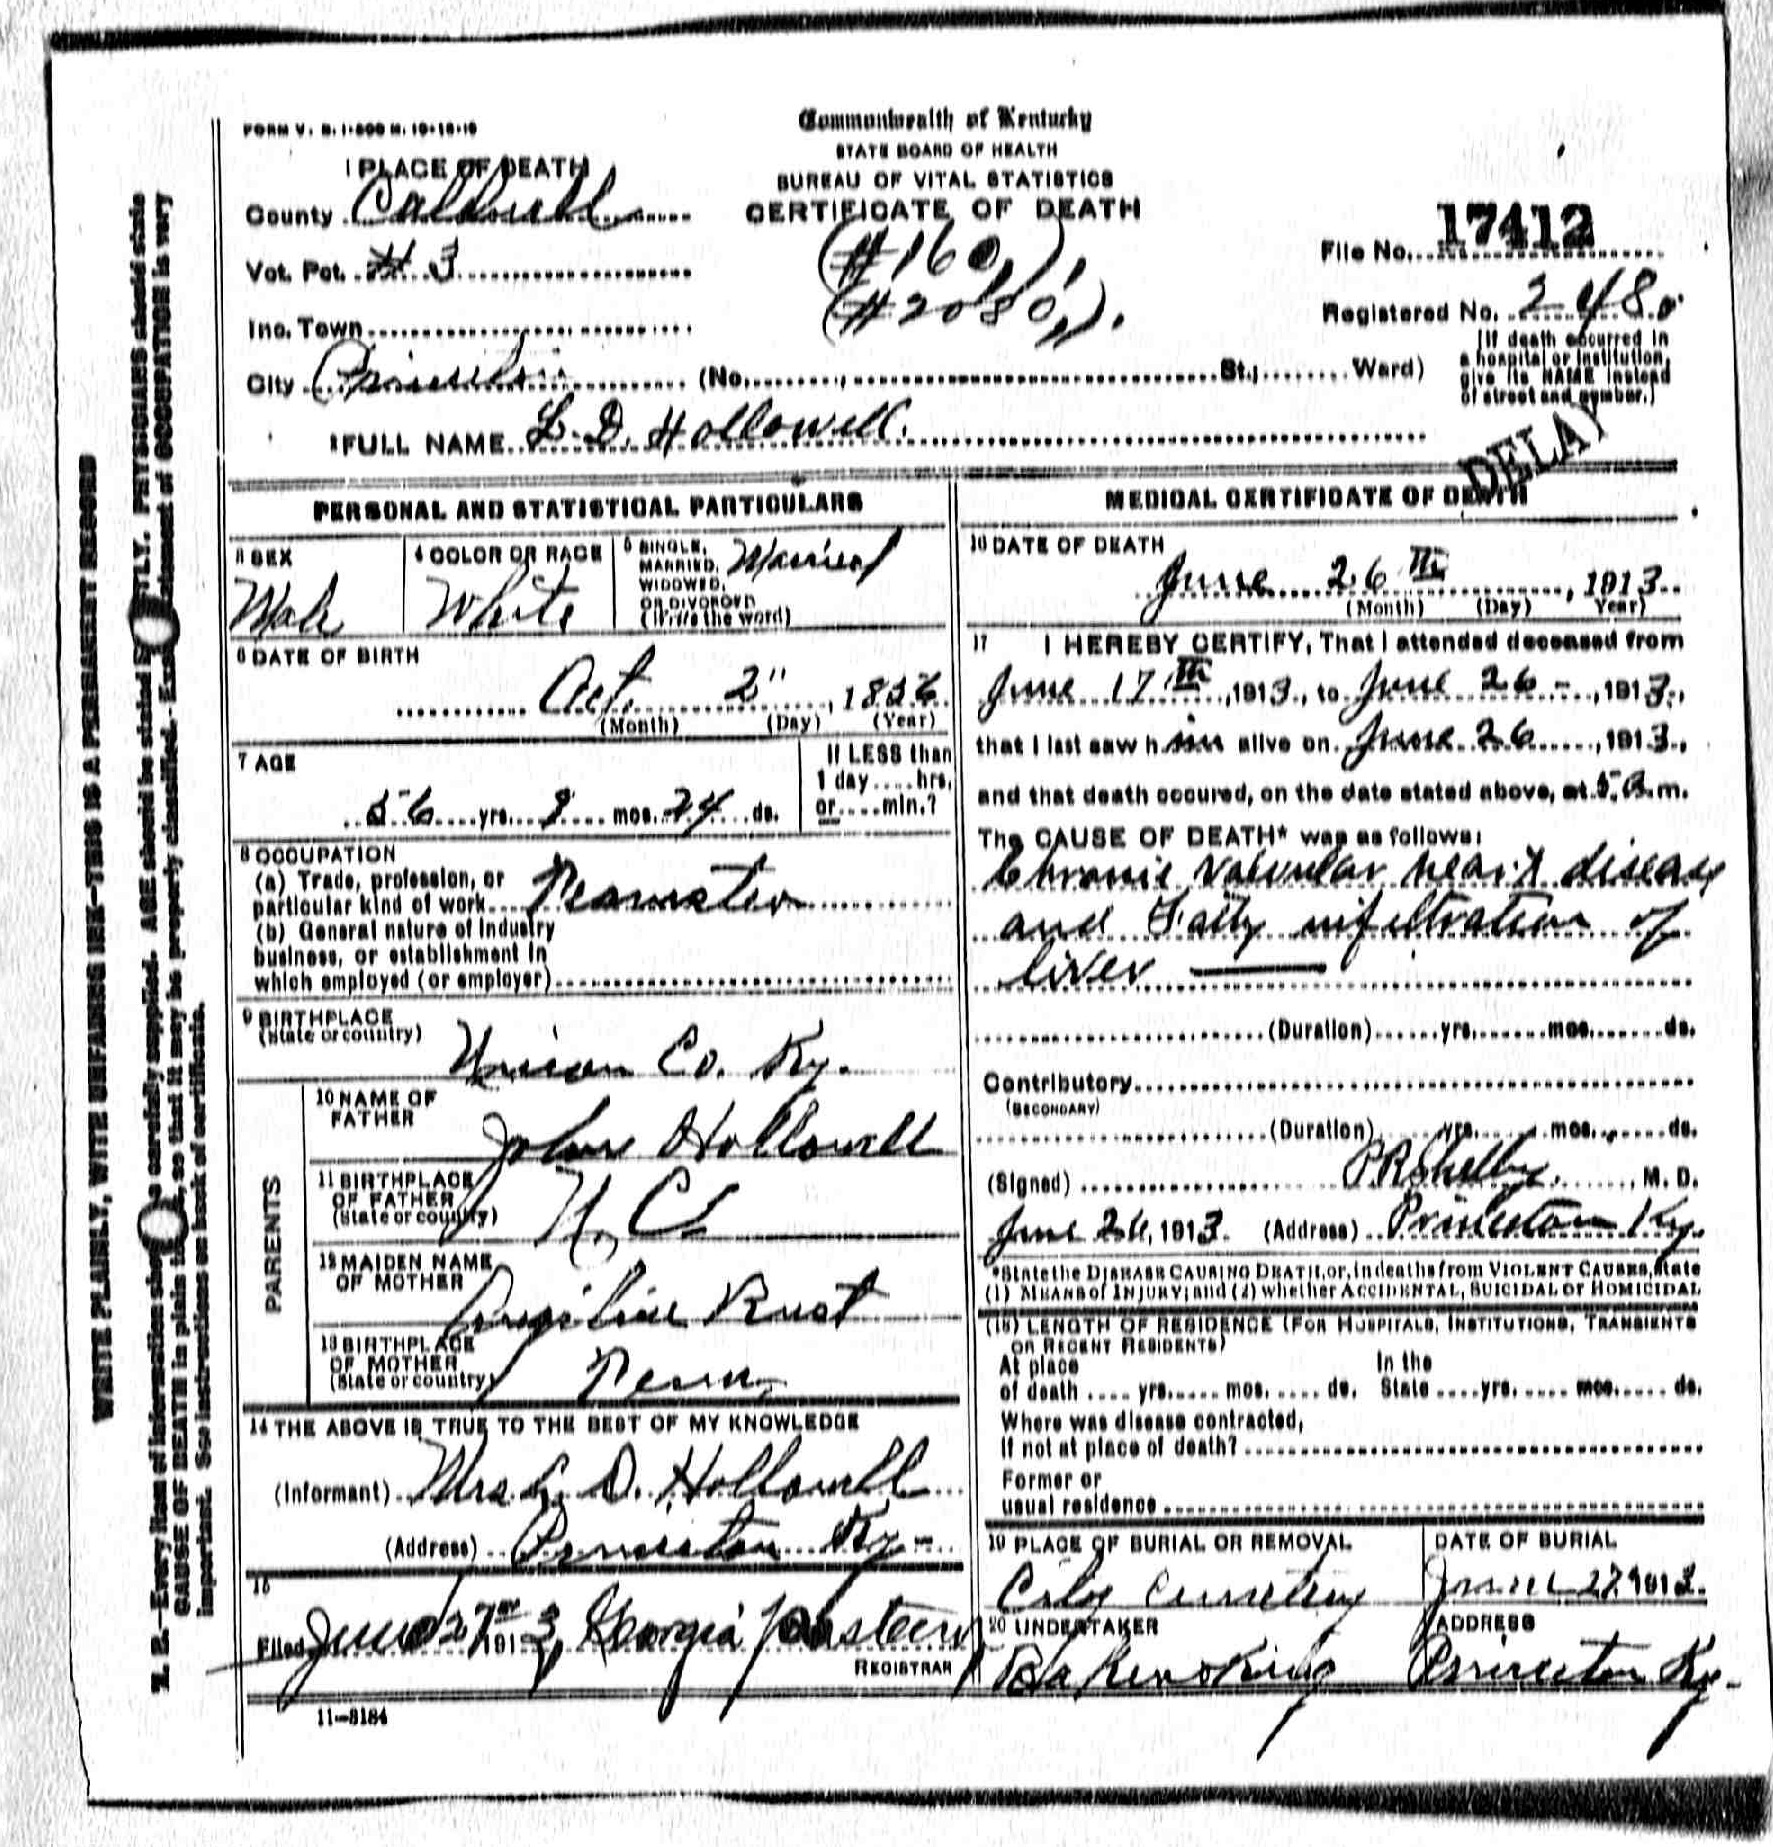 FORM V. S. 1-500 M. 10-18-10
Commonwealth of Kentucky
STATE BOARD OF HEALTH
BUREAU OF VITAL STATISTICS
CERTIFICATE OF DEATH
1 PLACE OF DEATH
County Caldwell
Vot. Pct. # 3
Inc. Town
City Princeton (No. St.; Ward)
(#160,)
(#2080,).
File No. 17412
Registered No. 2480
(If death occurred in
a hospital or institution,
give its NAME instead
of street and number.)
2 FULL NAME L. D. Hollowell.
DELAY
PERSONAL AND STATISTICAL PARTICULARS
3 SEX
Male
4 COLOR OR RACE
White
5 SINGLE,
MARRIED,
WIDOWED,
OR DIVORCED
(Write the word)
Married
6 DATE OF BIRTH
Oct. 2", 1856
(Month) (Day) (Year)
7 AGE
56 yrs. 8 mos. 24 ds.
If LESS than
1 day....hrs.
or....min.?
8 OCCUPATION
(a) Trade, profession, or
particular kind of work Teamster
(b) General nature of Industry
business, or establishment in
which employed (or employer)
9 BIRTHPLACE
(State or country)
Union Co. Ky.
PARENTS
10 NAME OF
FATHER
John Hollowell
11 BIRTHPLACE
OF FATHER
(State or country)
N. C.
12 MAIDEN NAME
OF MOTHER
Angiline Rust
13 BIRTHPLACE
OF MOTHER
(State or country)
Tenn,
14 THE ABOVE IS TRUE TO THE BEST OF MY KNOWLEDGE
(Informant) Mrs L. D. Hollowell
(Address) Princeton Ky-
15
Filed June 27, 1913, Georgia REGISTRAR
11-3184
MEDICAL CERTIFICATE OF DEATH
16 DATE OF DEATH
June 26 th, 1913
(Month) (Day) Year)
17 I HEREBY CERTIFY, That I attended deceased from
June 17 th, 1913, to June 26 -, 1913,
that I last saw him alive on June 26, 1913,
and that death occured, on the date stated above, at 5 A. m.
The CAUSE OF DEATH* was as follows:
Chronic Valvular heart disease
and Fatty infiltration of
liver
(Duration) yrs. mos. ds.
Contributory
(SECONDARY)
(Duration) yrs. mos. ds.
(Signed) P R Shelby, M. D.
June 26, 1913. (Address) Princeton Ky.
*State the DISEASE CAUSING DEATH, or, in deaths from VIOLENT CAUSES, state
(1) MEANS of INJURY; and (2) whether ACCIDENTAL, SUICIDAL or HOMICIDAL
(18) LENGTH OF RESIDENCE (FOR HOSPITALS, INSTITUTIONS, TRANSIENTS
OR RECENT RESIDENTS)
At place In the
of death .... yrs. .... mos. .... ds. State .... yrs. .... mos. .... ds.
Where was disease contracted,
If not at place of death?
Former or
usual residence
19 PLACE OF BURIAL OR REMOVAL
City Cemetery
DATE OF BURIAL
June 27 1913.
20 UNDERTAKER
ADDRESS
Princeton Ky-
WRITE PLAINLY, WITH UNFADING INK—THIS IS A PERMANENT RECORD
N. B.—Every item of information should be carefully supplied. AGE should be stated EXACTLY. PHYSICIANS should state
CAUSE OF DEATH in plain terms, so that it may be properly classified. Exact statement of OCCUPATION is very
important. See instructions on back of certificate.